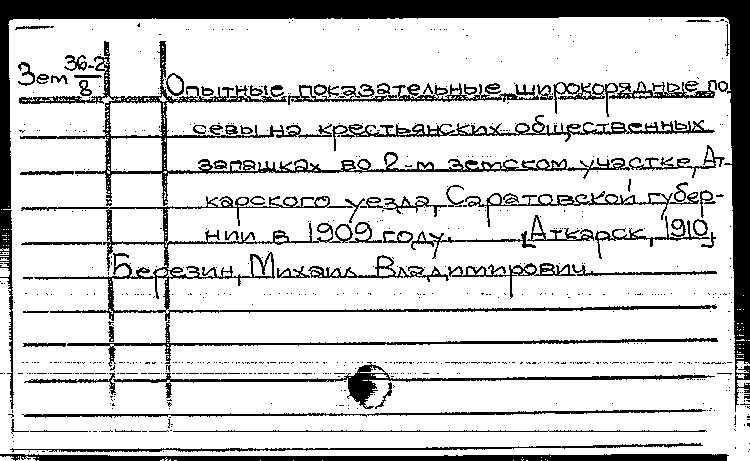 Зем 36-2/8 Опытные, показательные, широкорядные по
севы на крестьянских общественных
запашках во 2-м земском участке, Ат-
карского уезда, Саратовской губер-
нии в 1909 году. [Аткарск, 1910]
Березин, Михаил Владимирович.